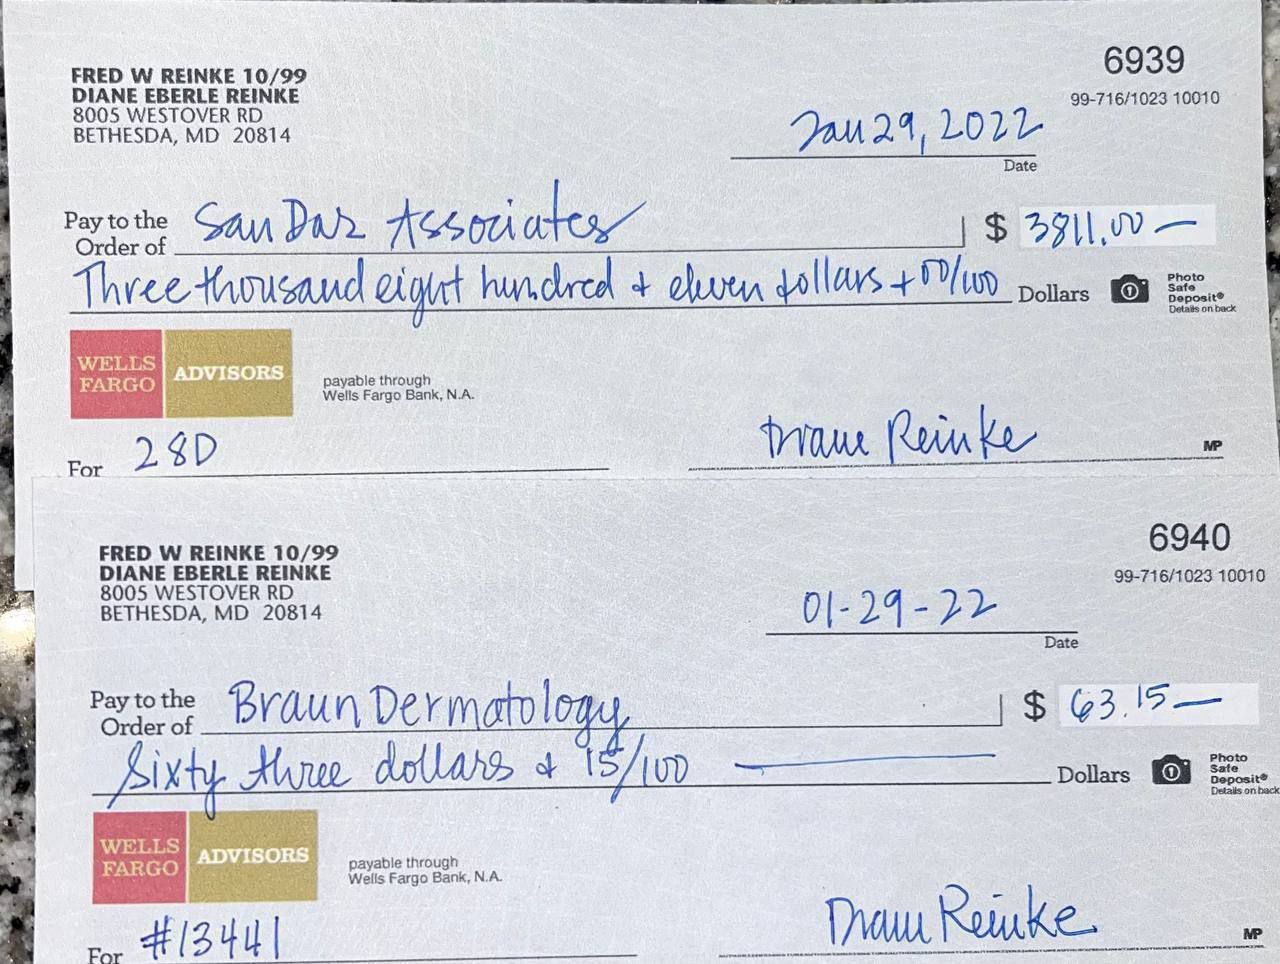 6939
FRED W REINKE 10/99
DIANE EBERLE REINKE
8005 WESTOVER RD
BETHESDA, MD 20814
99-716/1023 10010
Jan 29, 2022
Date
Pay to the
Order of
San Daz Associates
$ 3811.00
Three thousand eight hundred + eleven dollars + 00/100 Dollars
Photo
Safe
Deposit®
Details on back
WELLS
FARGO
ADVISORS
payable through
Wells Fargo Bank, N.A.
For 28D
Diane Reinke
MP
6940
FRED W REINKE 10/99
DIANE EBERLE REINKE
8005 WESTOVER RD
BETHESDA, MD 20814
99-716/1023 10010
01-29-22
Date
Pay to the
Order of
Braun Dermatology
$ 63.15
Sixty three dollars + 15/100 Dollars
Photo
Safe
Deposit®
Details on back
WELLS
FARGO
ADVISORS
payable through
Wells Fargo Bank, N.A.
For #13441
Diane Reinke
MP